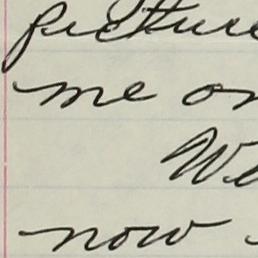 picture
me on
We
now